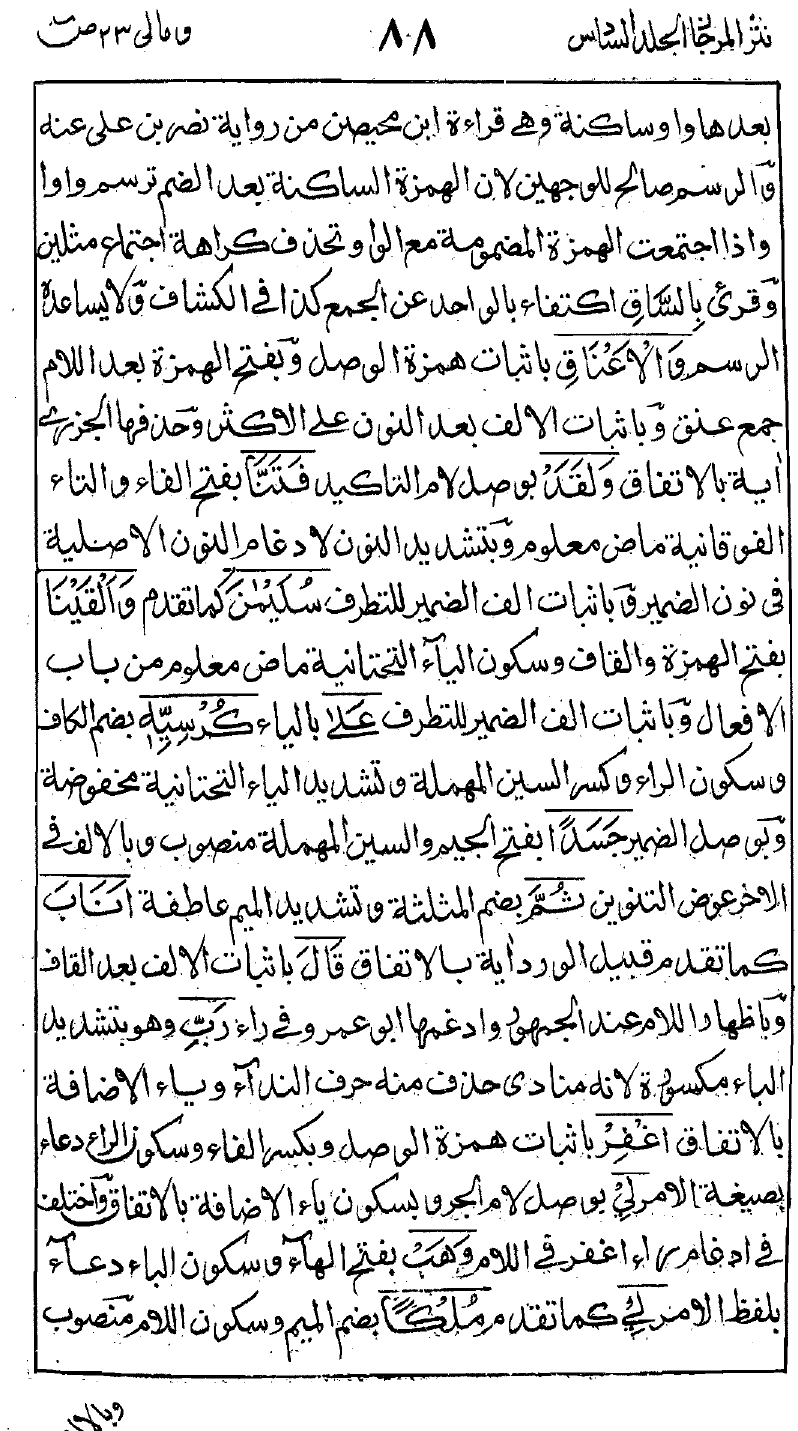 نثر المرجان الجلد السادس ٨٠٨ ومالی ٢٣ صۤ
بعدها واو ساكنة وهى قراءة ابن محيصن من رواية نصر بن على عنه
وّالرسم صالح للوجهين لان الهمزة الساكنة بعد الضم ترسم واوا
واذا اجتمعت الهمزة المضمومة مع الواو تحذف كراهة اجتماع مثلين
وّقرئ بِالسَّاقِ اكتفاء بالواحد عن الجمع كذا فى الكشاف وّلا يساعده
الرسم وَالْاَعْنَاقِ باثبات همزة الوصل وّبفتح الهمزة بعد اللام
جمع عنق وّباثبات الالف بعد النون على الاكثر وّحذفها الجزرى
اٰية بالاتفاق وَلَقَدْ بوصل لام التاكيد فَتَنَّا بفتح الفاء والتاء
الفوقانية ماض معلوم وّبتشديد النون لادغام النون الاصلية
فى نون الضمير وّباثبات الف الضمير للتطرف سُلَيْمٰنَ كما تقدم وَاَلْقَيْنَا
بفتح الهمزة والقاف وسكون الياۤء التحتانية ماض معلوم من باب
الافعال وّباثبات الف الضمير للتطرف عَلٰى بالياء كُرْسِيِّهٖ بضم الكاف
وسكون الراء وكسر السين المهملة وتشديد الياء التحتانية مخفوضة
وّبوصل الضمير جَسَدًا بفتح الجيم والسين المهملة منصوب وبالالف فى
الاخر عوض التنوين ثُمَّ بضم المثلثة وتشديد الميم عاطفة اَنَابَ
كما تقدم قبيل الورد اٰية بالاتفاق قَالَ باثبات الالف بعد القاف
وّباظهار اللام عند الجمهور وادغمها ابو عمرو فى راء رَبِّ وهو بتشديد
الباء مكسورة لانه منادى حذف منه حرف النداۤء وياء الاضافة
بالاتفاق اغْفِرْ باثبات همزة الوصل وبكسر الفاء وسكون الراء دعاء
بصيغة الامر لِيْ بوصل لام الجر وبسكون ياء الاضافة بالاتفاق وّاختلف
فى ادغام راء اغفر فى اللام وَهَبْ بفتح الهاۤء وسكون الباء دعاۤء
بلفظ الامر لِيْ كما تقدم مُلْكًا بضم الميم وسكون اللام منصوب